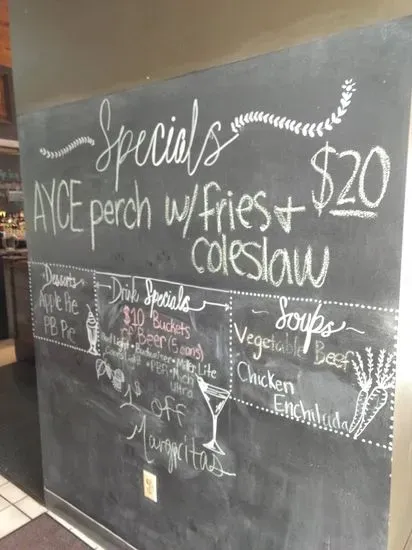 Specials
AYCE perch w/ fries +
coleslaw
$20
Desserts
Apple Pie
PB Pie
Drink Specials
$10 Buckets
of Beer (5 cans)
Bud Light • Budweiser • Miller Lite
• PBR • Mich
Ultra
$1 off
Margaritas
Soups
Vegetable Beef
Chicken
Enchilada